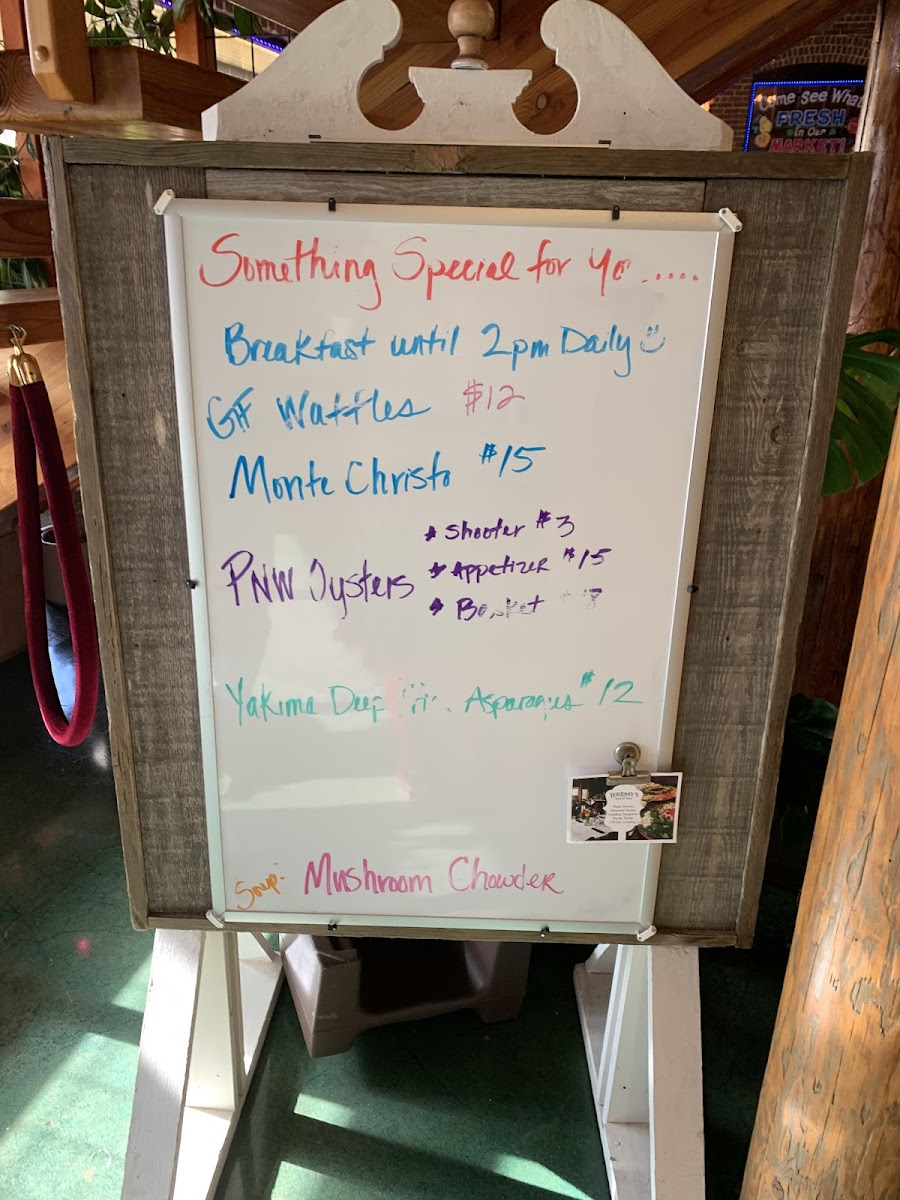 Come See What
FRESH
in Our
MARKET!
Something Special for Yo.....
Breakfast until 2pm Daily
GF Waffles $12
Monte Christo $15
PNW Oysters
* Shooter $3
* Appetizer $15
* Basket
Yakima Deep Asparagus $12
JEREMY'S
Soup: Mushroom Chowder